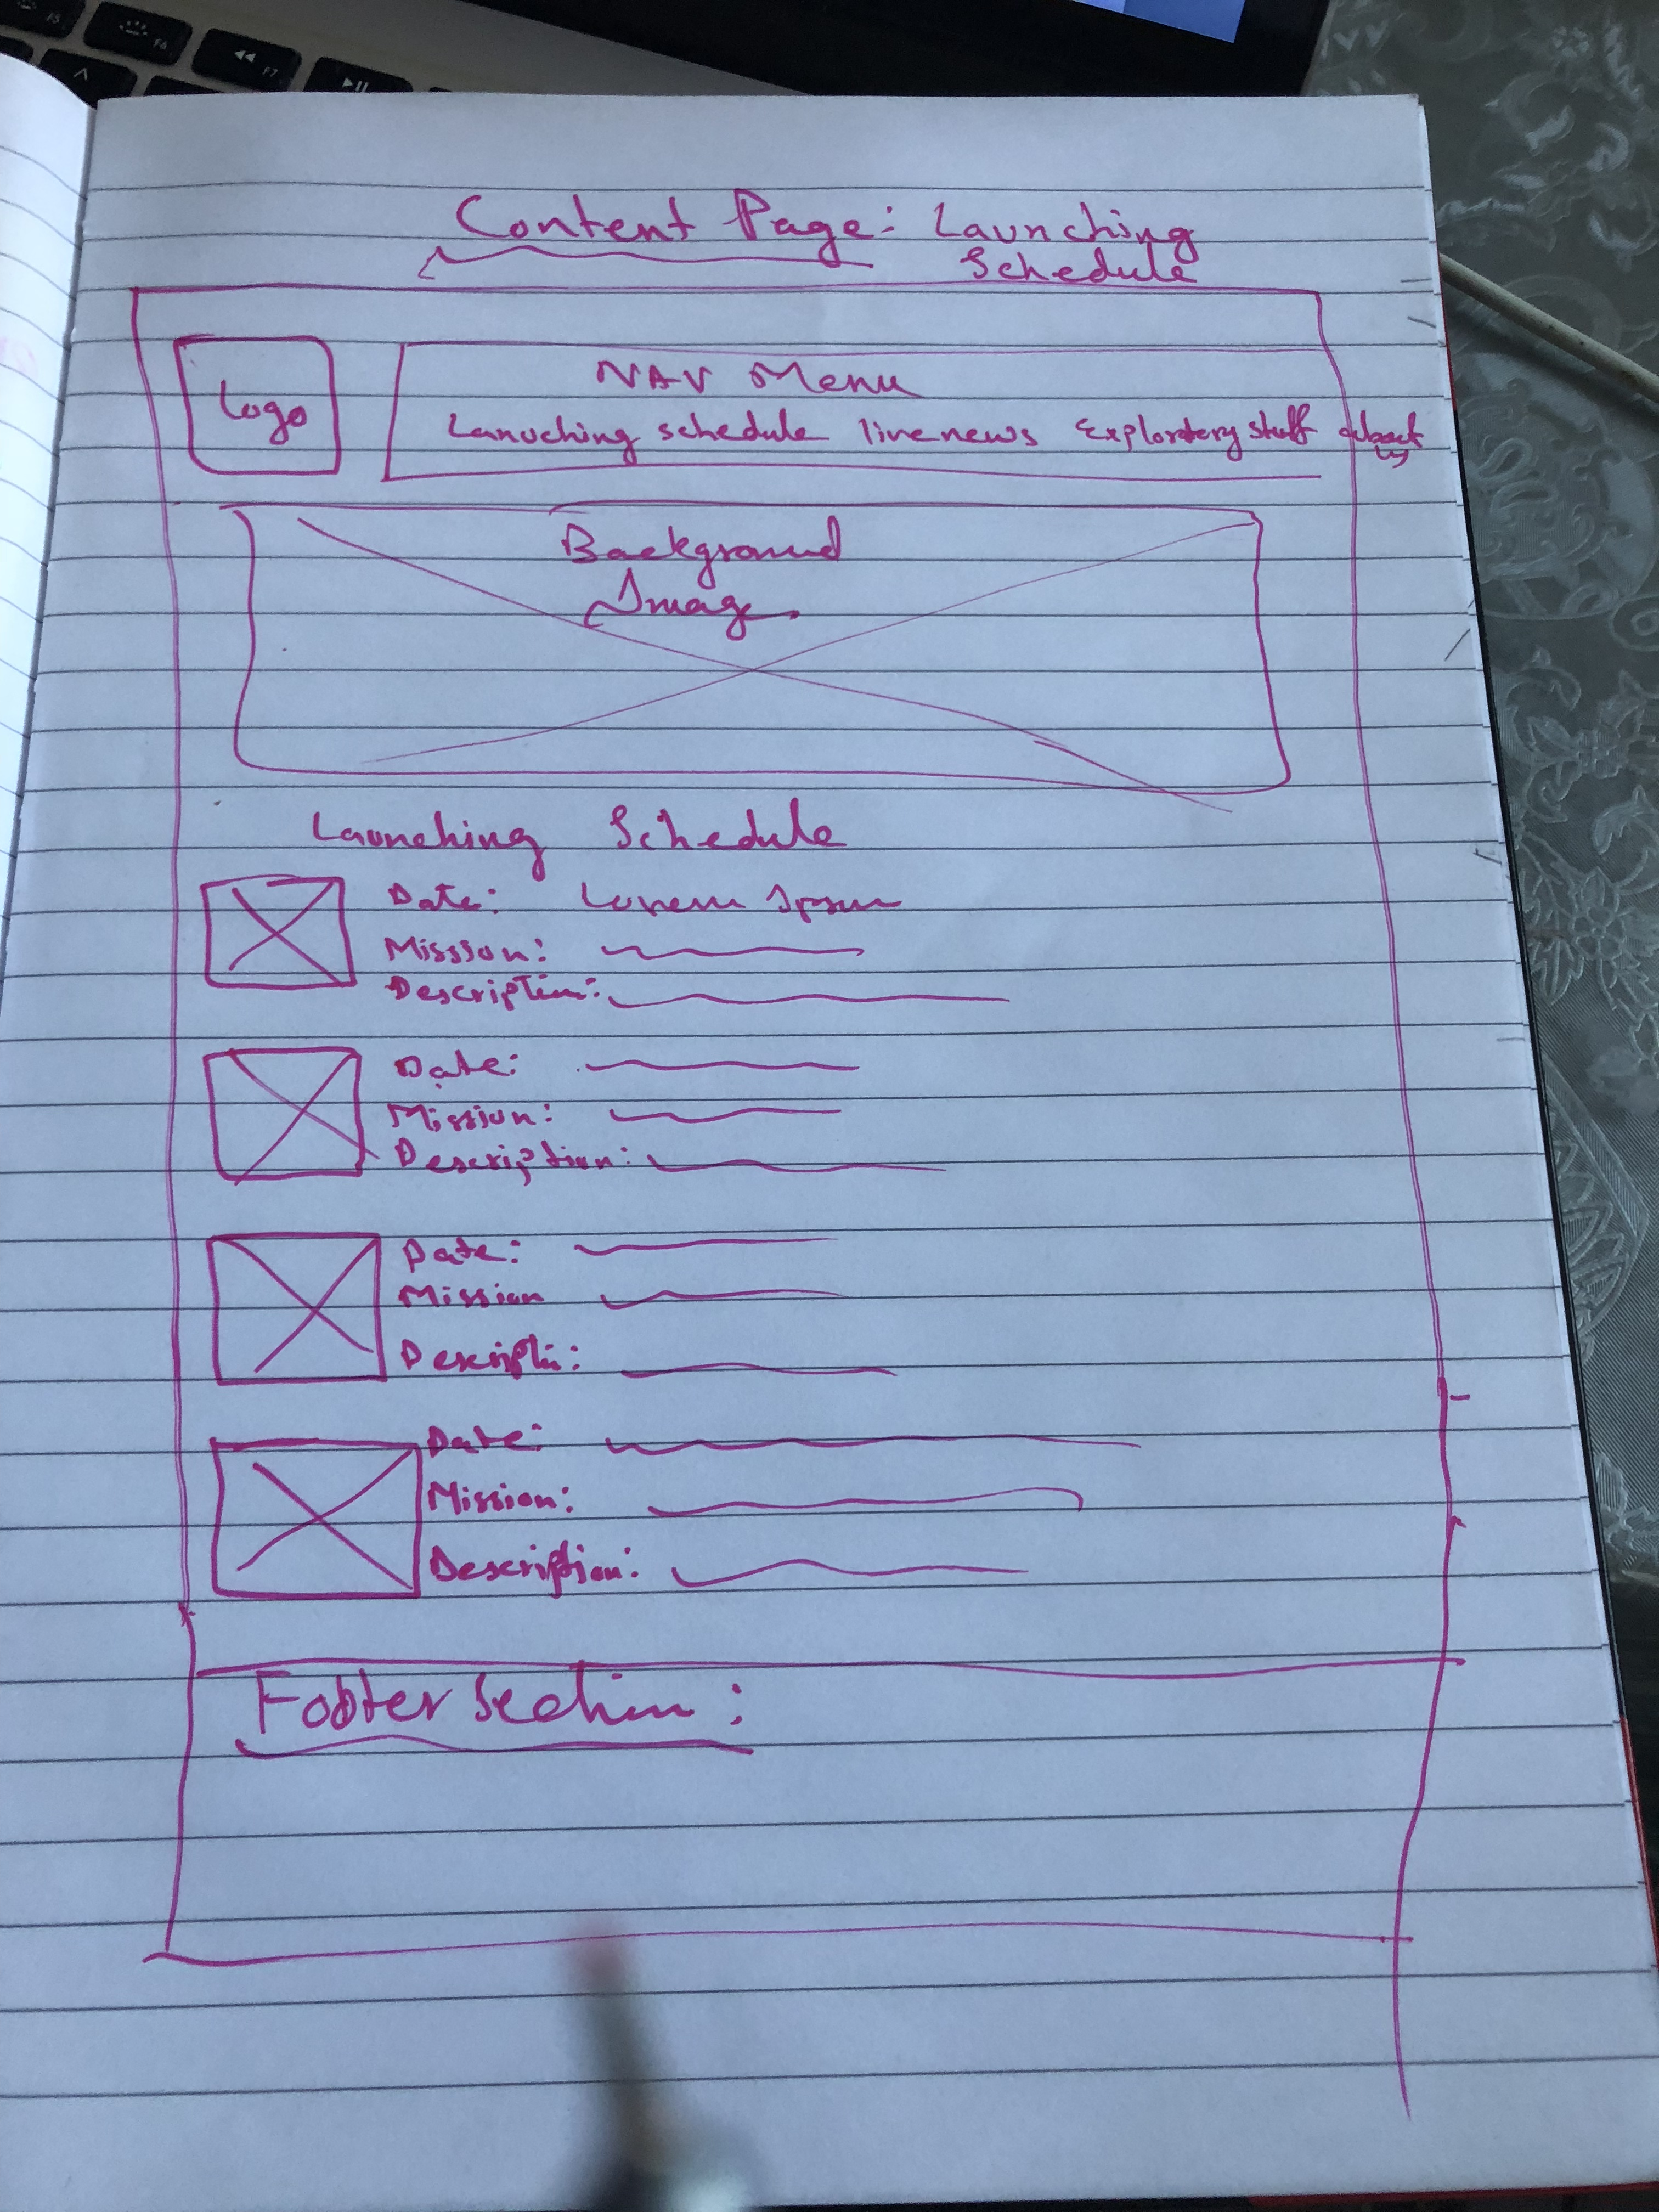 Content Page: Launching
Schedule
Logo
NAV Menu
Lanuching schedule livenews Exploratery stuff about
us
Background
Image
Launching Schedule
Date: Lorem Ipsum
Misssion:
Description:
Date:
Mission:
Description:
Date:
Mission
Descripti:
Date:
Mission:
Description:
Footer Section:
F5
F6
F7